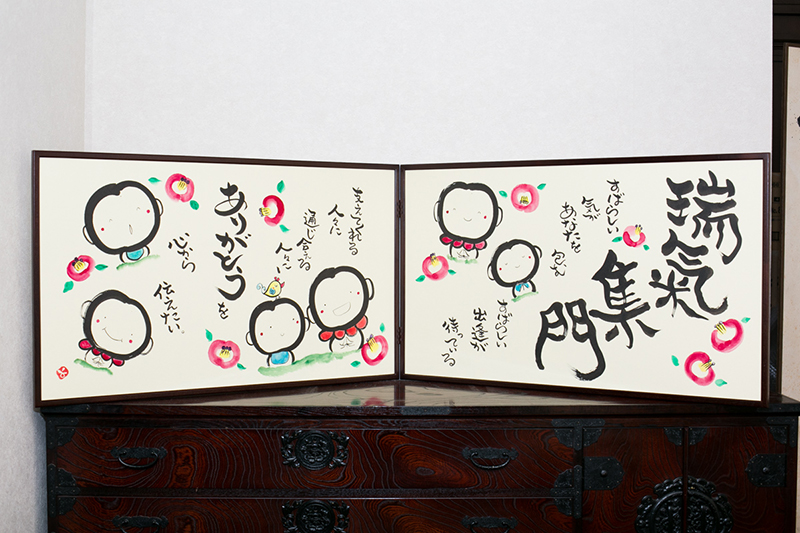 瑞氣集門
すばらしい
気が
あなたを
包み
すばらしい
出逢が
待っている
支えてくれる
人々に
通じ合える
人々に
ありがとうを
心から
伝えたい。